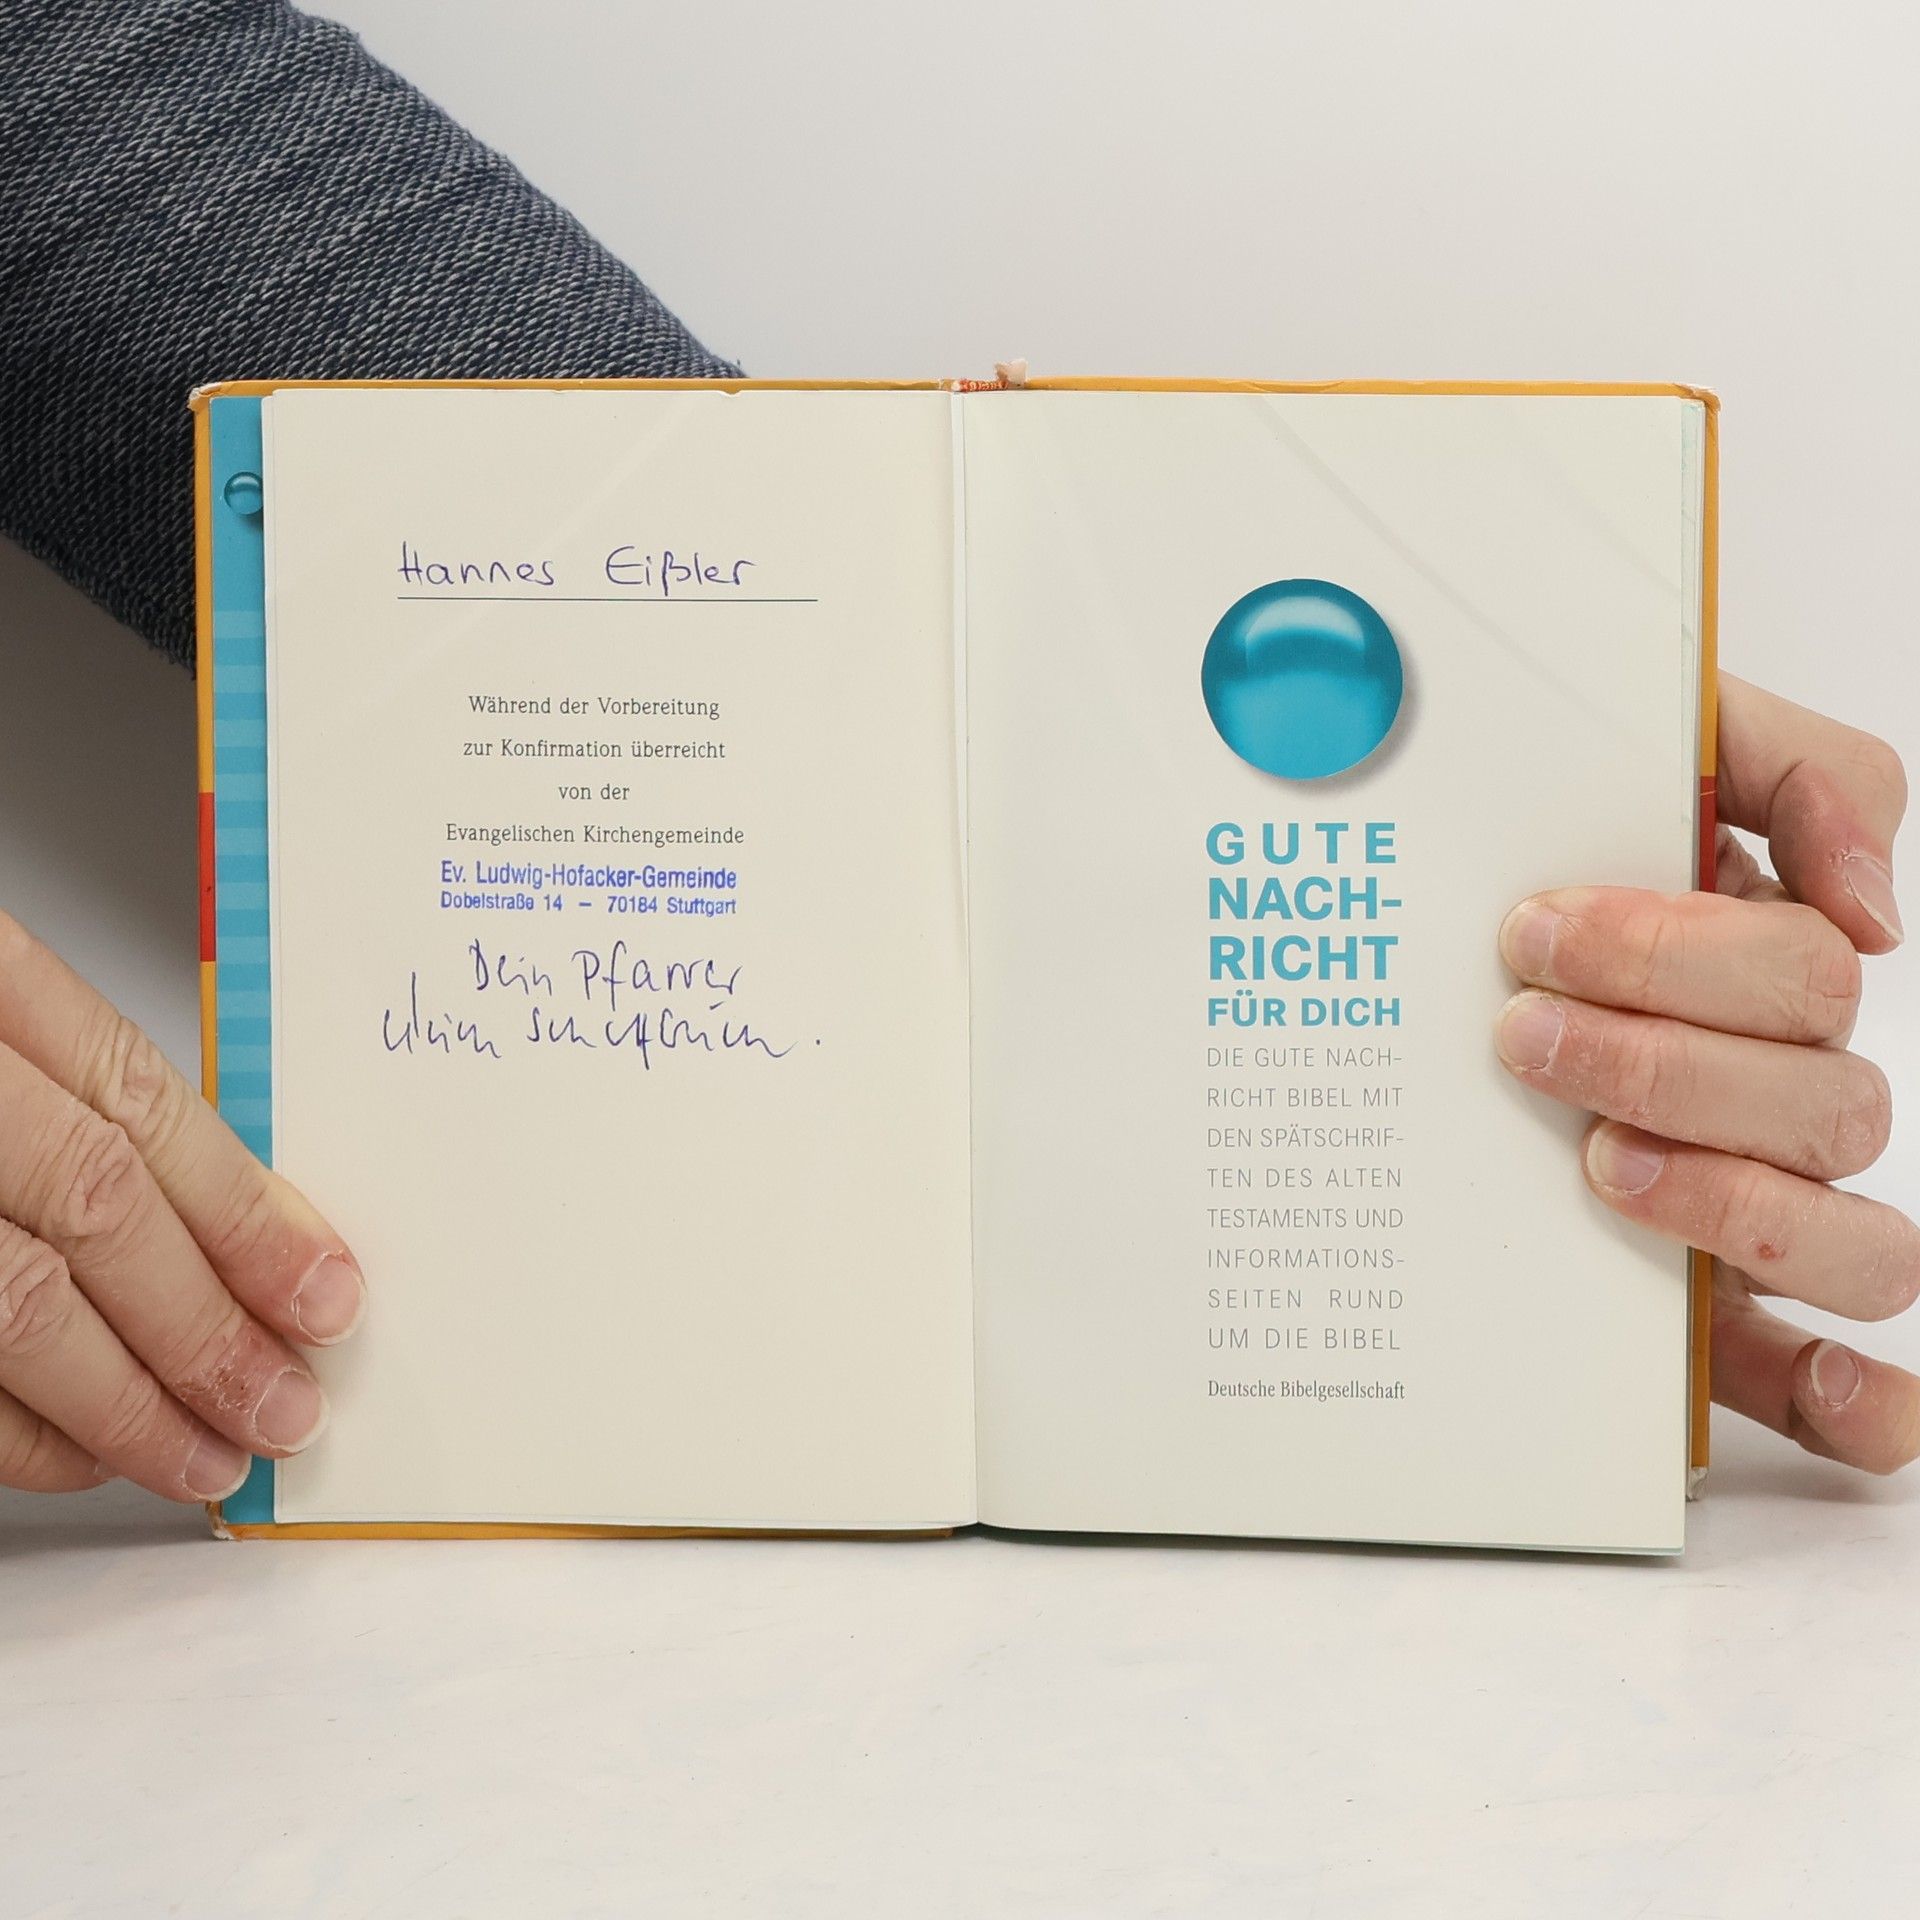 Hannes Eißler
Während der Vorbereitung
zur Konfirmation überreicht
von der
Evangelischen Kirchengemeinde
Ev. Ludwig-Hofacker-Gemeinde
Dobelstraße 14 – 70184 Stuttgart
Dein Pfarrer
GUTE
NACH-
RICHT
FÜR DICH
DIE GUTE NACH-
RICHT BIBEL MIT
DEN SPÄTSCHRIF-
TEN DES ALTEN
TESTAMENTS UND
INFORMATIONS-
SEITEN RUND
UM DIE BIBEL
Deutsche Bibelgesellschaft